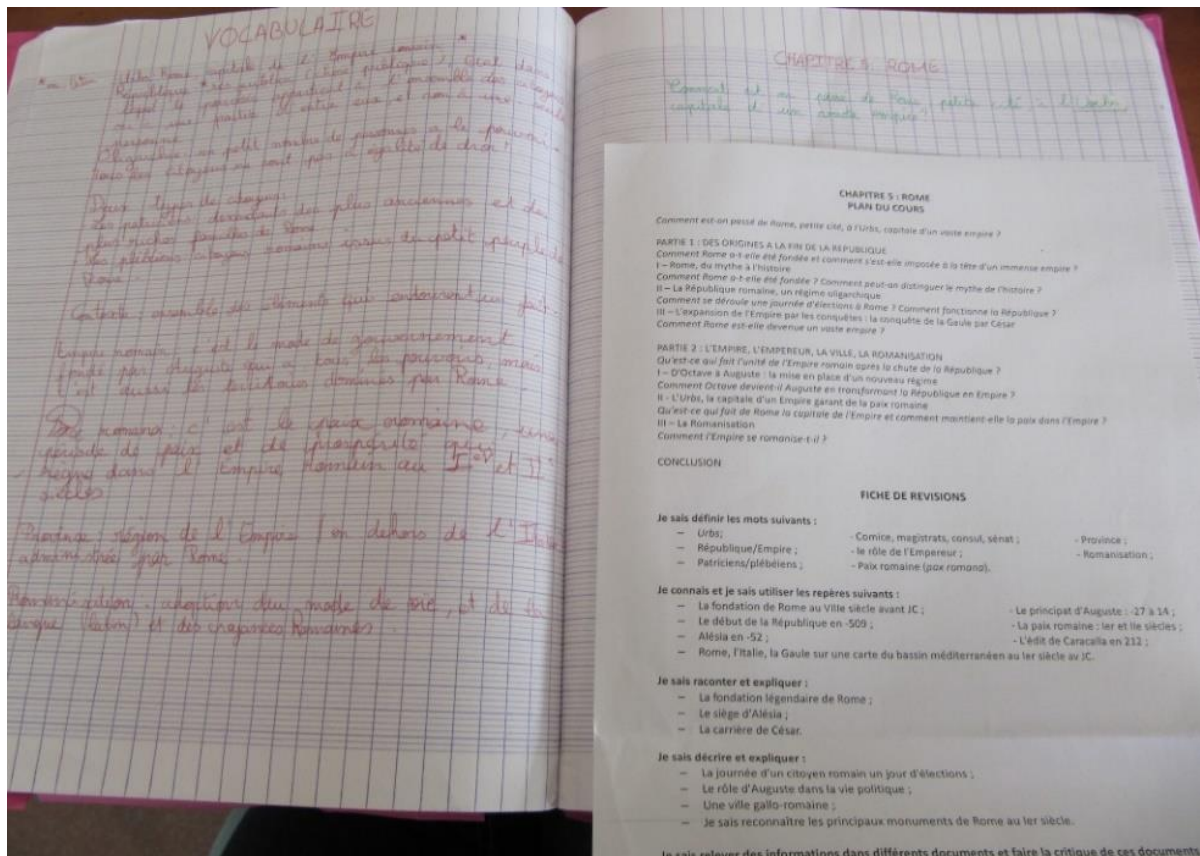 VOCABULAIRE
* en latin
Urbs, Rome capitale de l'Empire romain, *
République * res publica (chose publique), état dans
lequel le pouvoir appartient à l'ensemble des citoyens
ou à une partie d'entre eux et non à une seule
personne
Oligarchie, un petit nombre de personnes a le pouvoir,
tous les citoyens ne sont pas à égalité de droit
Deux types de citoyens
Les patriciens, descendants des plus anciennes et des
plus riches familles de Rome
Les plébéiens citoyens romains issus du petit peuple de
Rome.
Contexte, ensemble des éléments qui entourent un fait.
Empire romain, c'est le mode de gouvernement
tous les pouvoirs, mais
c'est aussi les territoires dominés par Rome
romana, c'est la paix romaine, une
période de paix et de prospérité qui
règne dans l'Empire Romain au Ier et IIe
siècles
Province, région de l'Empire en dehors de l'Italie
administrée par Rome
Romanisation, adoption du mode de vie, et de la
langue (latin) et des croyances Romaines
CHAPITRE 5. ROME
Comment est on passé de Rome, petite cité à l'Urbs,
capitale d'un vaste empire?
CHAPITRE 5 : ROME
PLAN DU COURS
Comment est-on passé de Rome, petite cité, à l'Urbs, capitale d'un vaste empire ?
PARTIE 1 : DES ORIGINES A LA FIN DE LA REPUBLIQUE
Comment Rome a-t-elle été fondée et comment s'est-elle imposée à la tête d'un immense empire ?
I – Rome, du mythe à l'histoire
Comment Rome a-t-elle été fondée ? Comment peut-on distinguer le mythe de l'histoire ?
II – La République romaine, un régime oligarchique
Comment se déroule une journée d'élections à Rome ? Comment fonctionne la République ?
III – L'expansion de l'Empire par les conquêtes : la conquête de la Gaule par César
Comment Rome est-elle devenue un vaste empire ?
PARTIE 2 : L'EMPIRE, L'EMPEREUR, LA VILLE, LA ROMANISATION
Qu'est-ce qui fait l'unité de l'Empire romain après la chute de la République ?
I – D'Octave à Auguste : la mise en place d'un nouveau régime
Comment Octave devient-il Auguste en transformant la République en Empire ?
II - L'Urbs, la capitale d'un Empire garant de la paix romaine
Qu'est-ce qui fait de Rome la capitale de l'Empire et comment maintient-elle la paix dans l'Empire ?
III – La Romanisation
Comment l'Empire se romanise-t-il ?
CONCLUSION
FICHE DE REVISIONS
Je sais définir les mots suivants :
– Urbs; - Comice, magistrats, consul, sénat ; - Province ;
– République/Empire ; - le rôle de l'Empereur ; - Romanisation ;
– Patriciens/plébéiens ; - Paix romaine (pax romana).
Je connais et je sais utiliser les repères suivants :
– La fondation de Rome au VIIIe siècle avant JC ; - Le principat d'Auguste : -27 à 14 ;
– Le début de la République en -509 ; - La paix romaine : Ier et IIe siècles ;
– Alésia en -52 ; - L'édit de Caracalla en 212 ;
– Rome, l'Italie, la Gaule sur une carte du bassin méditerranéen au Ier siècle av JC.
Je sais raconter et expliquer :
– La fondation légendaire de Rome ;
– Le siège d'Alésia ;
– La carrière de César.
Je sais décrire et expliquer :
– La journée d'un citoyen romain un jour d'élections ;
– Le rôle d'Auguste dans la vie politique ;
– Une ville gallo-romaine ;
– Je sais reconnaître les principaux monuments de Rome au Ier siècle.
Je sais relever des informations dans différents documents et faire la critique de ces documents